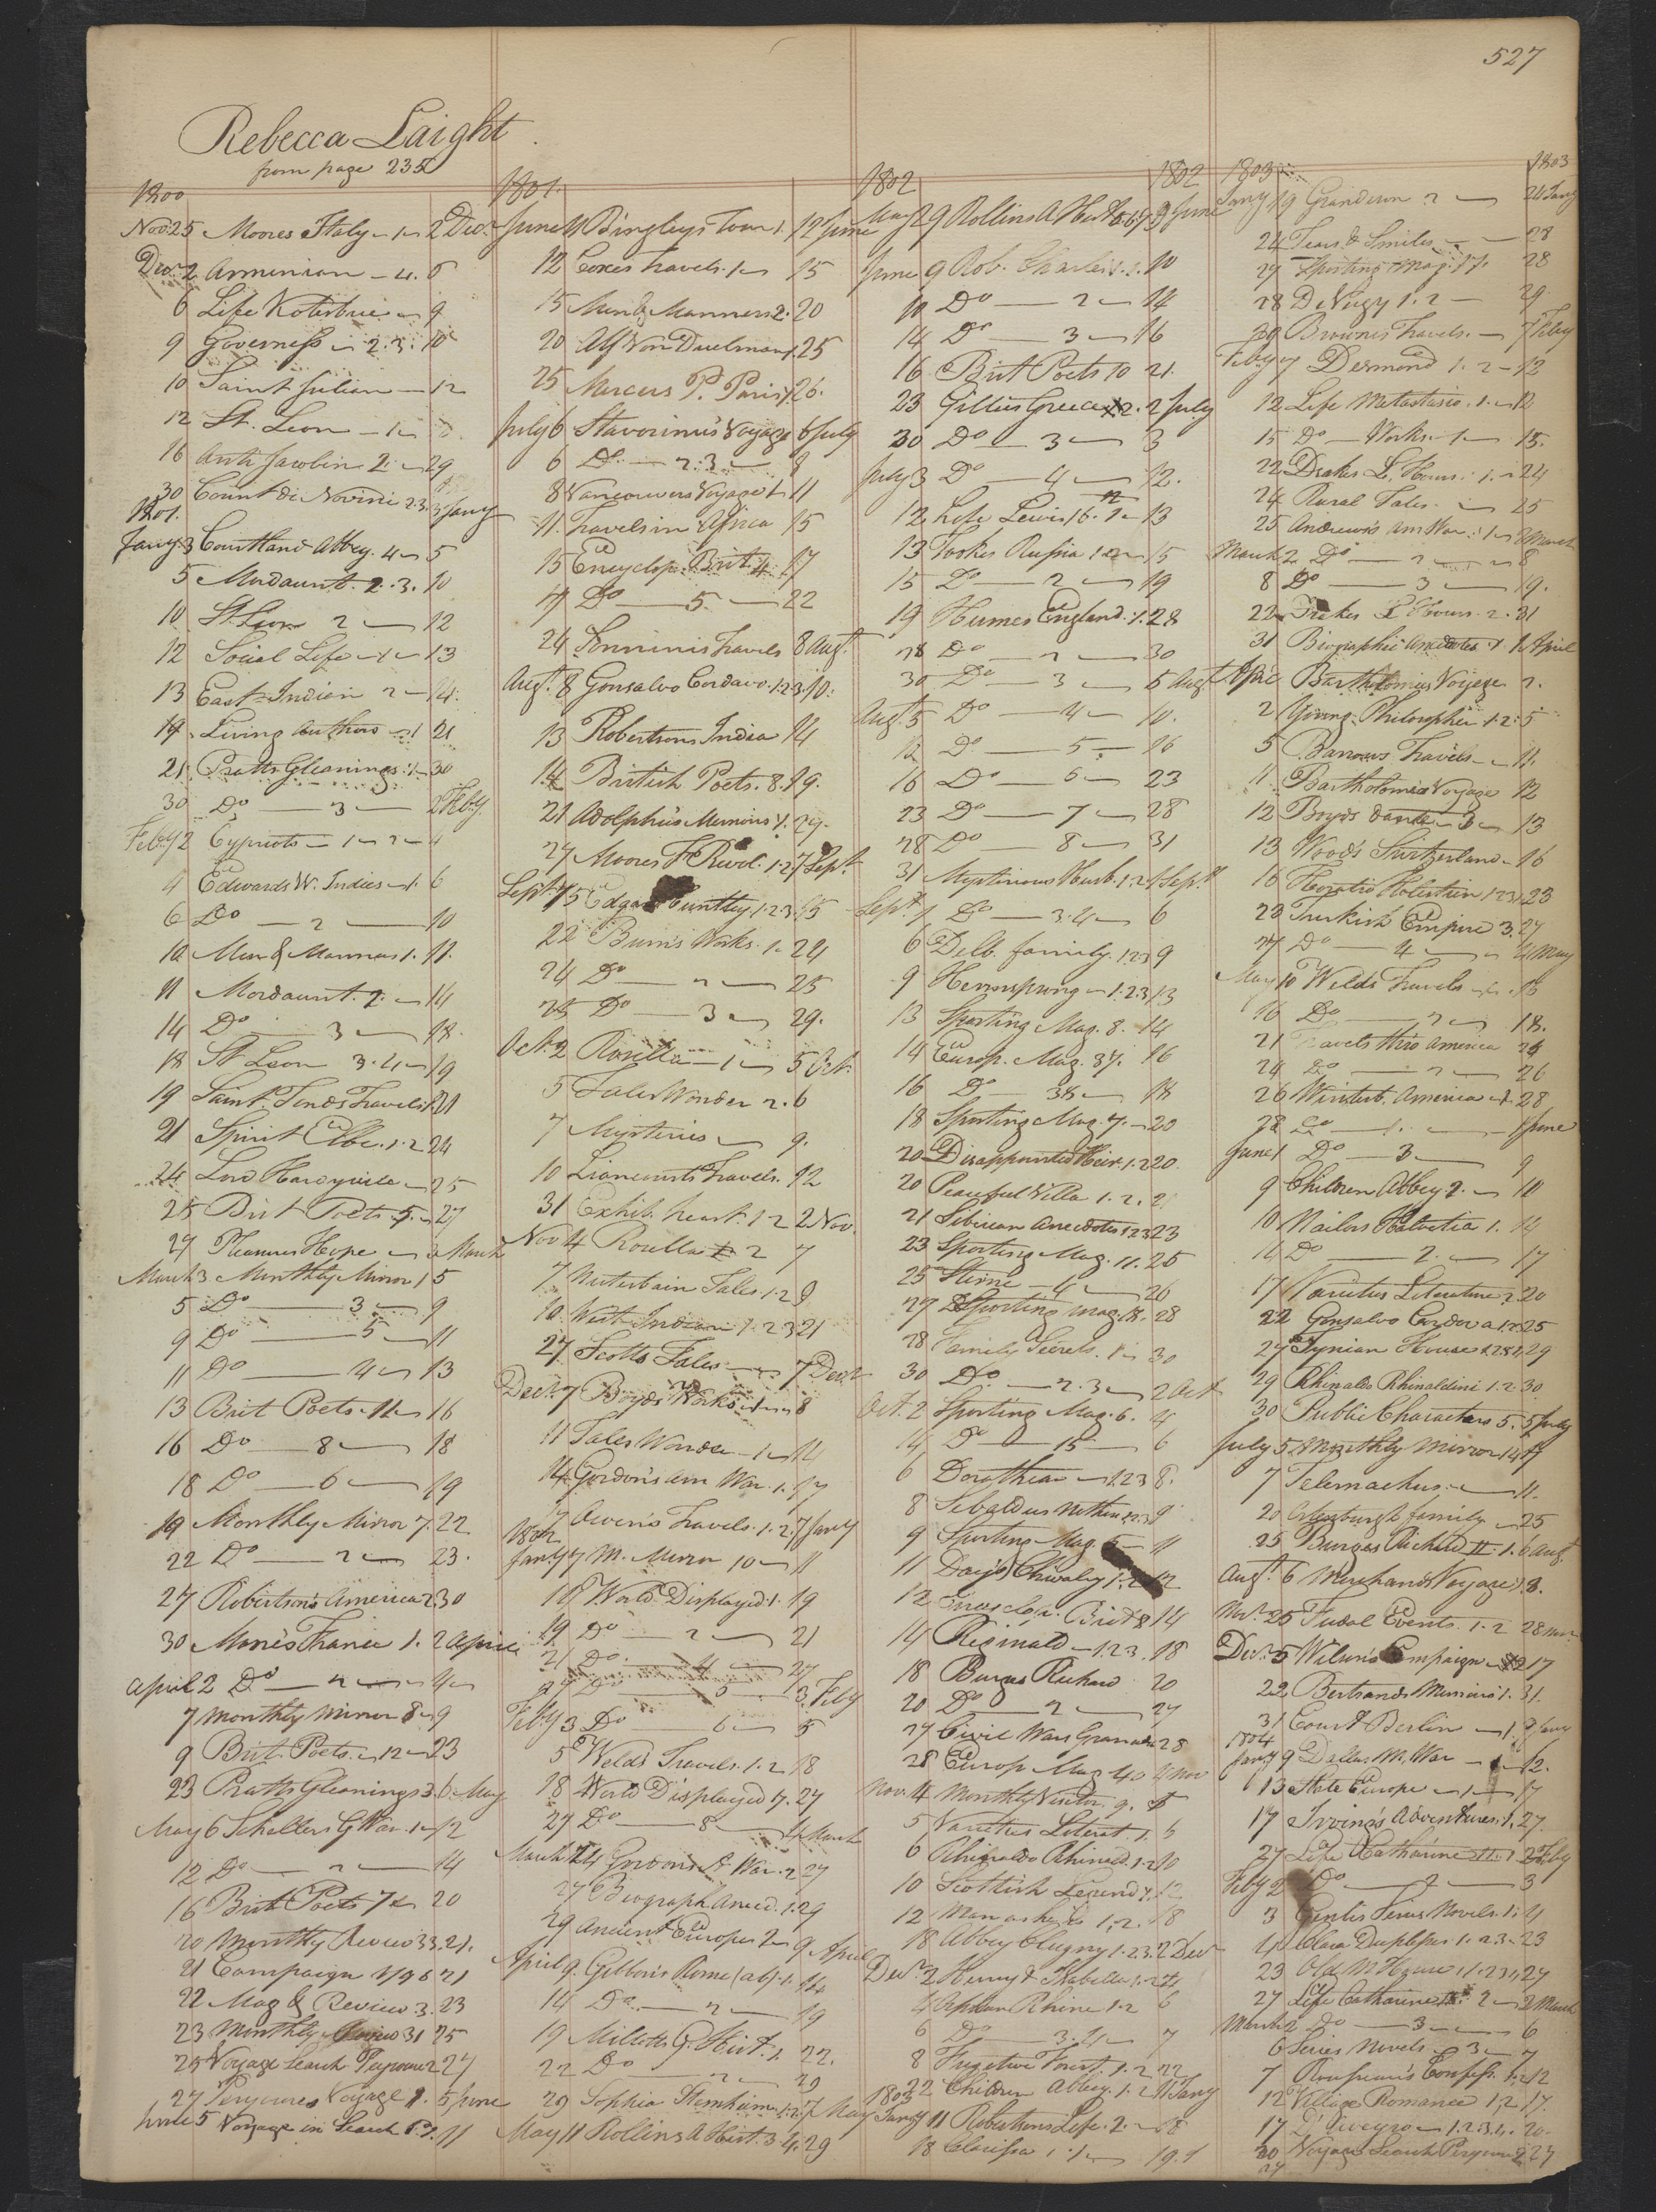 527
Rebecca Laight
from page 235
1800
Nov. 25 Moores Italy 1 2 Dec.
Decr. 2 Armenian 4. 6
6 Life Kotzebue 9
9 Governess 2. 3. 10
10 Saint Julian 12
12 St. Leon 1
16 Anti Jacobin 2 29
30 Count di Novini 2.3. 3 Jany
1801.
Jany. 3 Courtland Abbey. 4 5
5 Mordaunt. 2. 3. 10
10 St. Leon 2 12
12 Social Life 1 13
13 East Indian 2 14.
14 Living Authors 1 21
21 Pratts Gleanings 1 30
30 Do 3 2 Feby.
Feby 2 Cypriots 1 2 4
4 Edwards W. Indies 1. 6
6 Do 2 10
10 Men & Manners 1. 11.
11 Mordaunt. 2. 14
14 Do 3 18.
18 St Leon 3. 4 19
19 Saint Fonds Travels 1 21
21 Spirit Elbe. 1. 2 24
24 Lord Hardyville 25
25 Brit Poets 5. 27
27 Pleasures Hope 3 March
March 3 Monthly Mirror 1 5
5 Do 3 9
9 Do 5 11
11 Do 4 13
13 Brit Poets 11 16
16 Do 8 18
18 Do 6 19
19 Monthly Mirror 7. 22
22 Do 2 23.
27 Robertson's America 2 30
30 France 1. 2 April
April 2 Do 2 4
7 Monthly Mirror 8 9
9 Brit. Poets. 12 23
23 Pratts Gleanings 3. 6 May
May 6 Schellers G War. 1 12
12 Do 2 14
16 Brit Poets 7 20
20 Monthly Review 33. 21.
21 Campaign 1796 21
22 Mag & Review 3. 23
23 Monthly Review 31 25
25 Voyage Search Peyrouse 2 27
27 Peyrouse Voyage 1. 5 June
June 5 Voyage in Search 1. 2. 11
1801
June 11 Bingleys Tour 1. 12 June
12 Coxes travels. 1 15
15 Men & Manners 2. 20
20 Alf Von Duelman 1 25
25 Merciers P. Paris 1 26.
July 6 Stavorinus Voyage 6 July
6 Do 2. 3 8
8 Vancouvers Voyage 1 11
11. Travels in Africa 15
15 Encyclop. Brit. 4. 17
17 Do 5. 22
24 Sonninis Travels 8 Augt.
Augt. 8 Gonsalvo Cordavo. 1.2.3 10.
13 Robertsons India 14
14 British Poets. 8. 19.
21 Adolphus Memoirs 1. 27.
27 Moores F. Revol. 1. 2 7 Sept.
Sept. 15 Edgar Huntley 1.2.3. 15
22 Burns Works. 1. 24
24 Do 2 25
25 Do 3 29.
Oct. 2 Rosella 1 5 Oct.
5 Tales Wonder 2. 6
7 Mysteries 9.
10 Liancourts Travels. 12
31 Exhib. heart. 1 2 2 Nov.
Nov 4 Rosella 2 7
7 Winterbain Tales. 1. 2 9
10. West Indian 1. 2 3 21
27 Scotts Tales 7 Decr.
Decr. 7 Boyds Works 1 8
11 Tales Wonder 1 14
14 Gordon's Am War. 1. 17
17 Owen's Travels. 1. 2. 7 Jany
1802
Jany 7 M. Mirror 10 11
16 World Displayed. 1. 19
19 Do 2 21
21 Do 4 27
27 Do 5 3 Feby
Feby 3 Do 6 5
5 Welds Travels. 1. 2. 18
18 World Displayed 7. 27
27 Do 8 4 March
March 24 Gordons A War. 2 27
27 Biograph Anecd. 1. 29
29 Ancient Europe 2 9 April
April 9. Gibbon's Rome (ab) 1. 14
14 Do 2 19
19 Millotts G. Hist. 1. 22.
22 Do 2 29
29 Sophia Sternheim. 1. 2. 7 May
May 11 Rollins A Hist. 3. 4. 29
1802 1802
May 29 Rollins A Hist. 5. 6. 7 9 June
June 9 Rob. Charles. 1. 10
10 Do 2 14
14 Do 3 16
16. Brit Poets 10 21.
23 Gillies Greece 2. 2 July
30 Do 3 3
July 3 Do 4 12.
12. Life Lewis 16. 1 13
13 Tookes Russia 1 15
15 Do 2 19
19 Humes England. 1. 28
28 Do 2 30
30 Do 3 5 Augt
Augt. 5 Do 4 10.
12 Do 5 16
16 Do 6 23
23 Do 7 28
28 Do 8 31
31 Mysterious Husb. 1. 2 1 Sept.
Sept. 1 Do 3. 4 6
6 Delb. family. 1.2.3 9
9 Hermsprong 1. 2. 3 13
13 Sporting Mag. 8. 14
14 Europ. Mag. 37. 16
16 Do 38 18
18 Sporting Mag. 7. 20
20 Disappointed Heir. 1. 2 20.
20 Peaceful Villa 1. 2. 21
21 Sibirian Anecdotes 1 2 3 23
23 Sporting Mag. 11. 25
25 Sterne 4 26
27 Sporting mag. 18. 28
28 Family Secrets. 1 30
30 Do. 2. 3 2 Oct
Oct. 2 Sporting Mag. 6. 4
4 Do 15 6
6 Dorothean 1.2.3 8.
8 Sebaldus Nothan 1 2 3 9
9 Sporting Mag. 5 11
11 Days Chivalry 1. 2 12
12 Brit 8 14
14 Reginald 1.2.3. 18
18 Burges Richard 20
20 Do 2 27
27 Civil Wars Granada 28
28 Europ Mag 40 4 Nov
Nov. 4 Monthly Visitor. 9. 5
5 Varieties Literat. 1. 6
6 Rhinaldo Rhinald. 1. 2 10
10 Scottish Legend 1. 12
12 1. 2. 18
18 Abbey Clugny 1. 2 3. 2 Decr
Decr. 2 Henry & Isabella. 1. 2 4
4 Orphan Rhine 1. 2 6
6 Do 3. 4 7
8 Fugitive Forest. 1. 2 22
22 Children Abbey. 1. 2 11 Jany
1803
Jany 11 Robertsons Life. 2. 18
18 Clarissa 1. 19.
1803 1803
Jany 19 Grandison 2 24 Jany
24 Tears & Smiles 28
27 Sporting mag. 17. 28
28 De Valgy 1. 2 29
29 Brownes Travels. 7 Feby
Feby 7 Desmond 1. 2 12
12 Life Metastasio. 1. 12
15 Do Works. 1 15.
22 Drakes L. Hours. 1. 24
24 Rural Tales. 25
25 Andrews Am War. 1 2 March
March 2 Do 2 8
8 Do 3 19.
22 Drakes L Hours. 2. 31
31 Biographic Anecdotes 1 1 April
April Bartholomius Voyage 2.
2 Young Philosopher 1. 2. 5
5 Barrows Travels 11.
11 Bartholomew Voyage 12
12 Boyds Dante 3 13
13 Wood's Switzerland 16
16 Horatio Holstein 1 2 3. 23
23 Turkish Empire 3. 27
27 Do 4 4 May
May 10 Welds Travels 1. 16
16 Do 2 18.
21 Travels thro America 24
24 Do 2 26
26 Winterb. America 1. 28
28 Do 1 June
June 1 Do 3 9
9 Children Abbey 2. 10
10 Nailors Helvetia 1. 14
14 Do 2. 17
17 Varieties Literature 2 20
22 Gonsalvo Cordova 1 2 3 25
27 Tynian House 1. 2 3 4 29
29 Rhinaldo Rhinaldini 1. 2. 30
30 Public Characters 5. 5 July
July 5 Monthly Mirror 14 7
7 Telemachus 11.
20 Ortenburgh family 25
25 Burges Richard II. 1. 6 Augt.
Augt. 6 Merchands Voyage 1. 8.
Nov. 25 Fudal Events. 1. 2 28 Nov.
Decr. 5 Wilson's Campaign 17
22 Bertrands Memoirs 1. 31.
31 Court Berlin 1. 9 Jany
1804
Jany 9 Dallas M. War 1 12.
13 State Europe 1 17
17 Irving's Adventures. 1. 27.
27 Life Catharine II. 1 2 Feby
Feby 2 Do 2 3
3 Series Novels. 1. 4
4 Clara Duplesis. 1. 2. 3 23
23 Old M House. 1. 2 3 4. 27
27 Life Catharine II. 2 2 March
March 2 Do 3 6
6 Series Novels. 3 7
7 Rousseau's Confess. 1. 2 12
12 Village Romance 1. 2 17.
17 D'Aveyro 1. 2 3 4. 20
20 Voyage Search Peyrouse 2 27
27